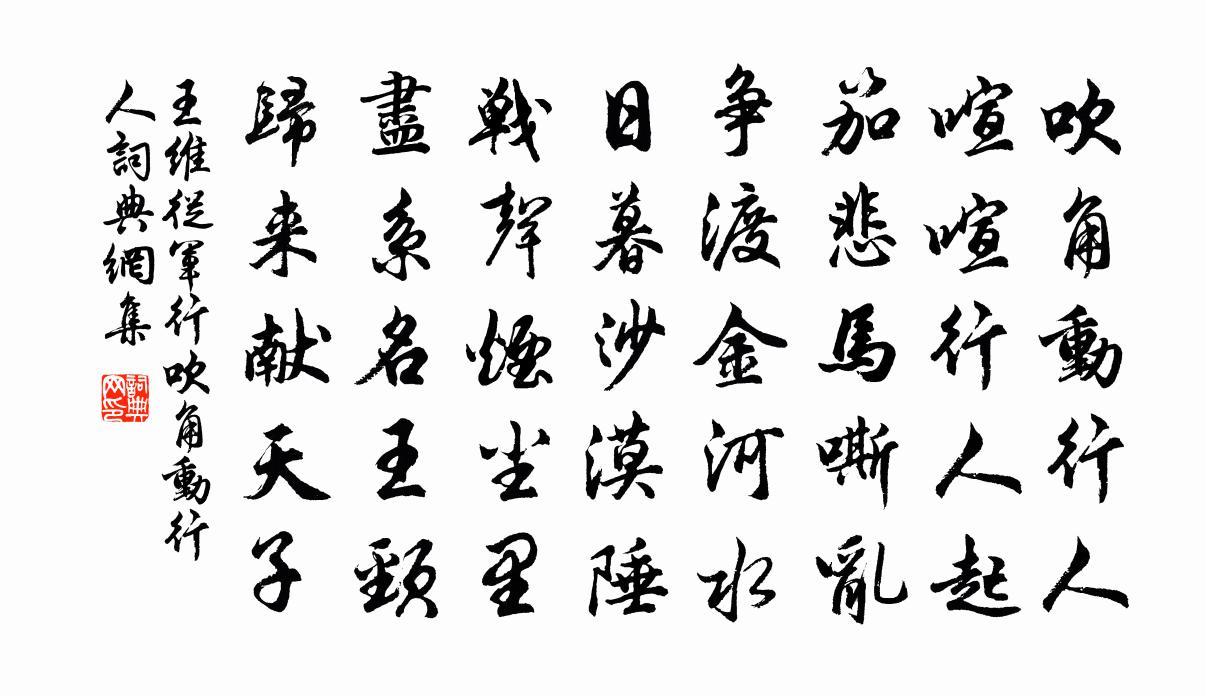 吹角動行人
喧喧行人起
笳悲馬嘶亂
争渡金河水
日暮沙漠陲
戰聲煙尘里
盡系名王頸
歸来献天子
王維從軍行吹角動行
人詞典網集
詞典网印